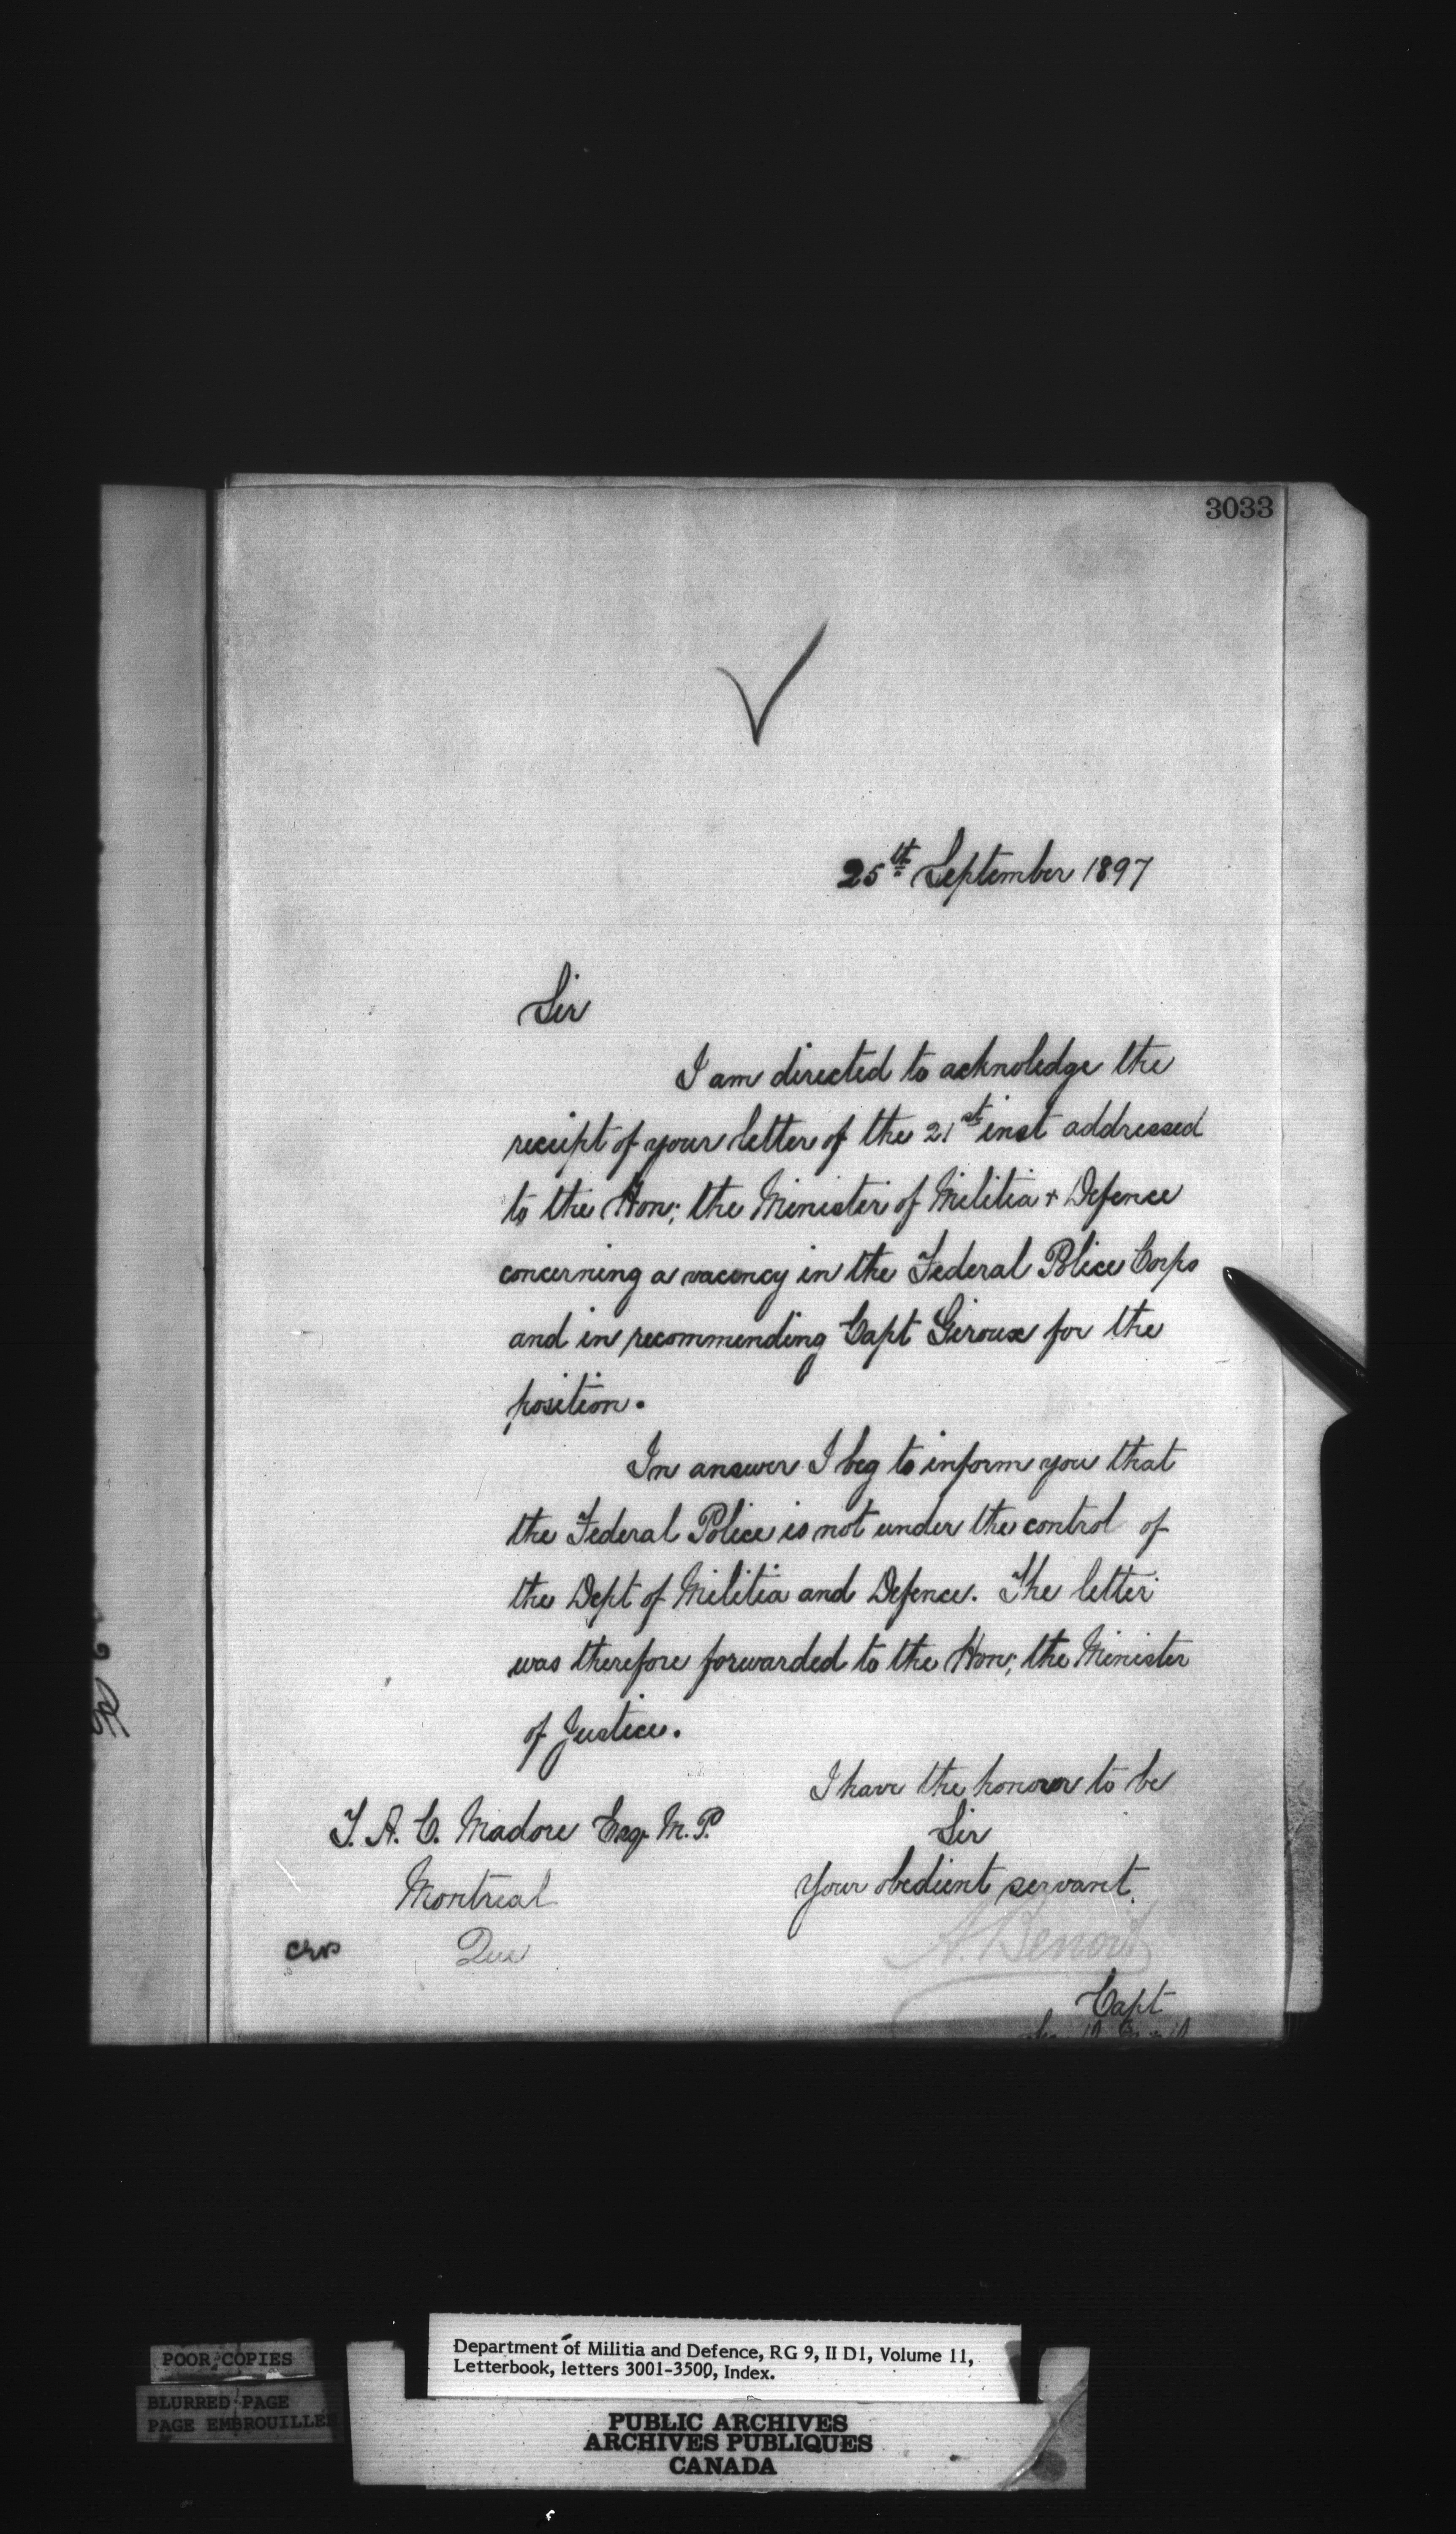 3033
25th September 1897
Sir
I am directed to acknoledge the
receipt of your letter of the 21st inst addressed
to the Hon; the Minister of Militia + Defence
concerning a vacency in the Federal Police Corps
and in recommending Capt Giroux for the
position.
In answer I beg to inform you that
the Federal Police is not under the control of
the Dept of Militia and Defence. The letter
was therefore forwarded to the Hon; the Minister
of Justice.
I have the honour to be
Sir
Your obedient servant.
A. Benoit
Capt
J. A. C. Madore Esqr M.P.
Montreal
Que
POOR COPIES
BLURRED PAGE
PAGE EMBROUILLEE
Department of Militia and Defence, RG 9, II D1, Volume 11,
Letterbook, letters 3001-3500, Index.
PUBLIC ARCHIVES
ARCHIVES PUBLIQUES
CANADA